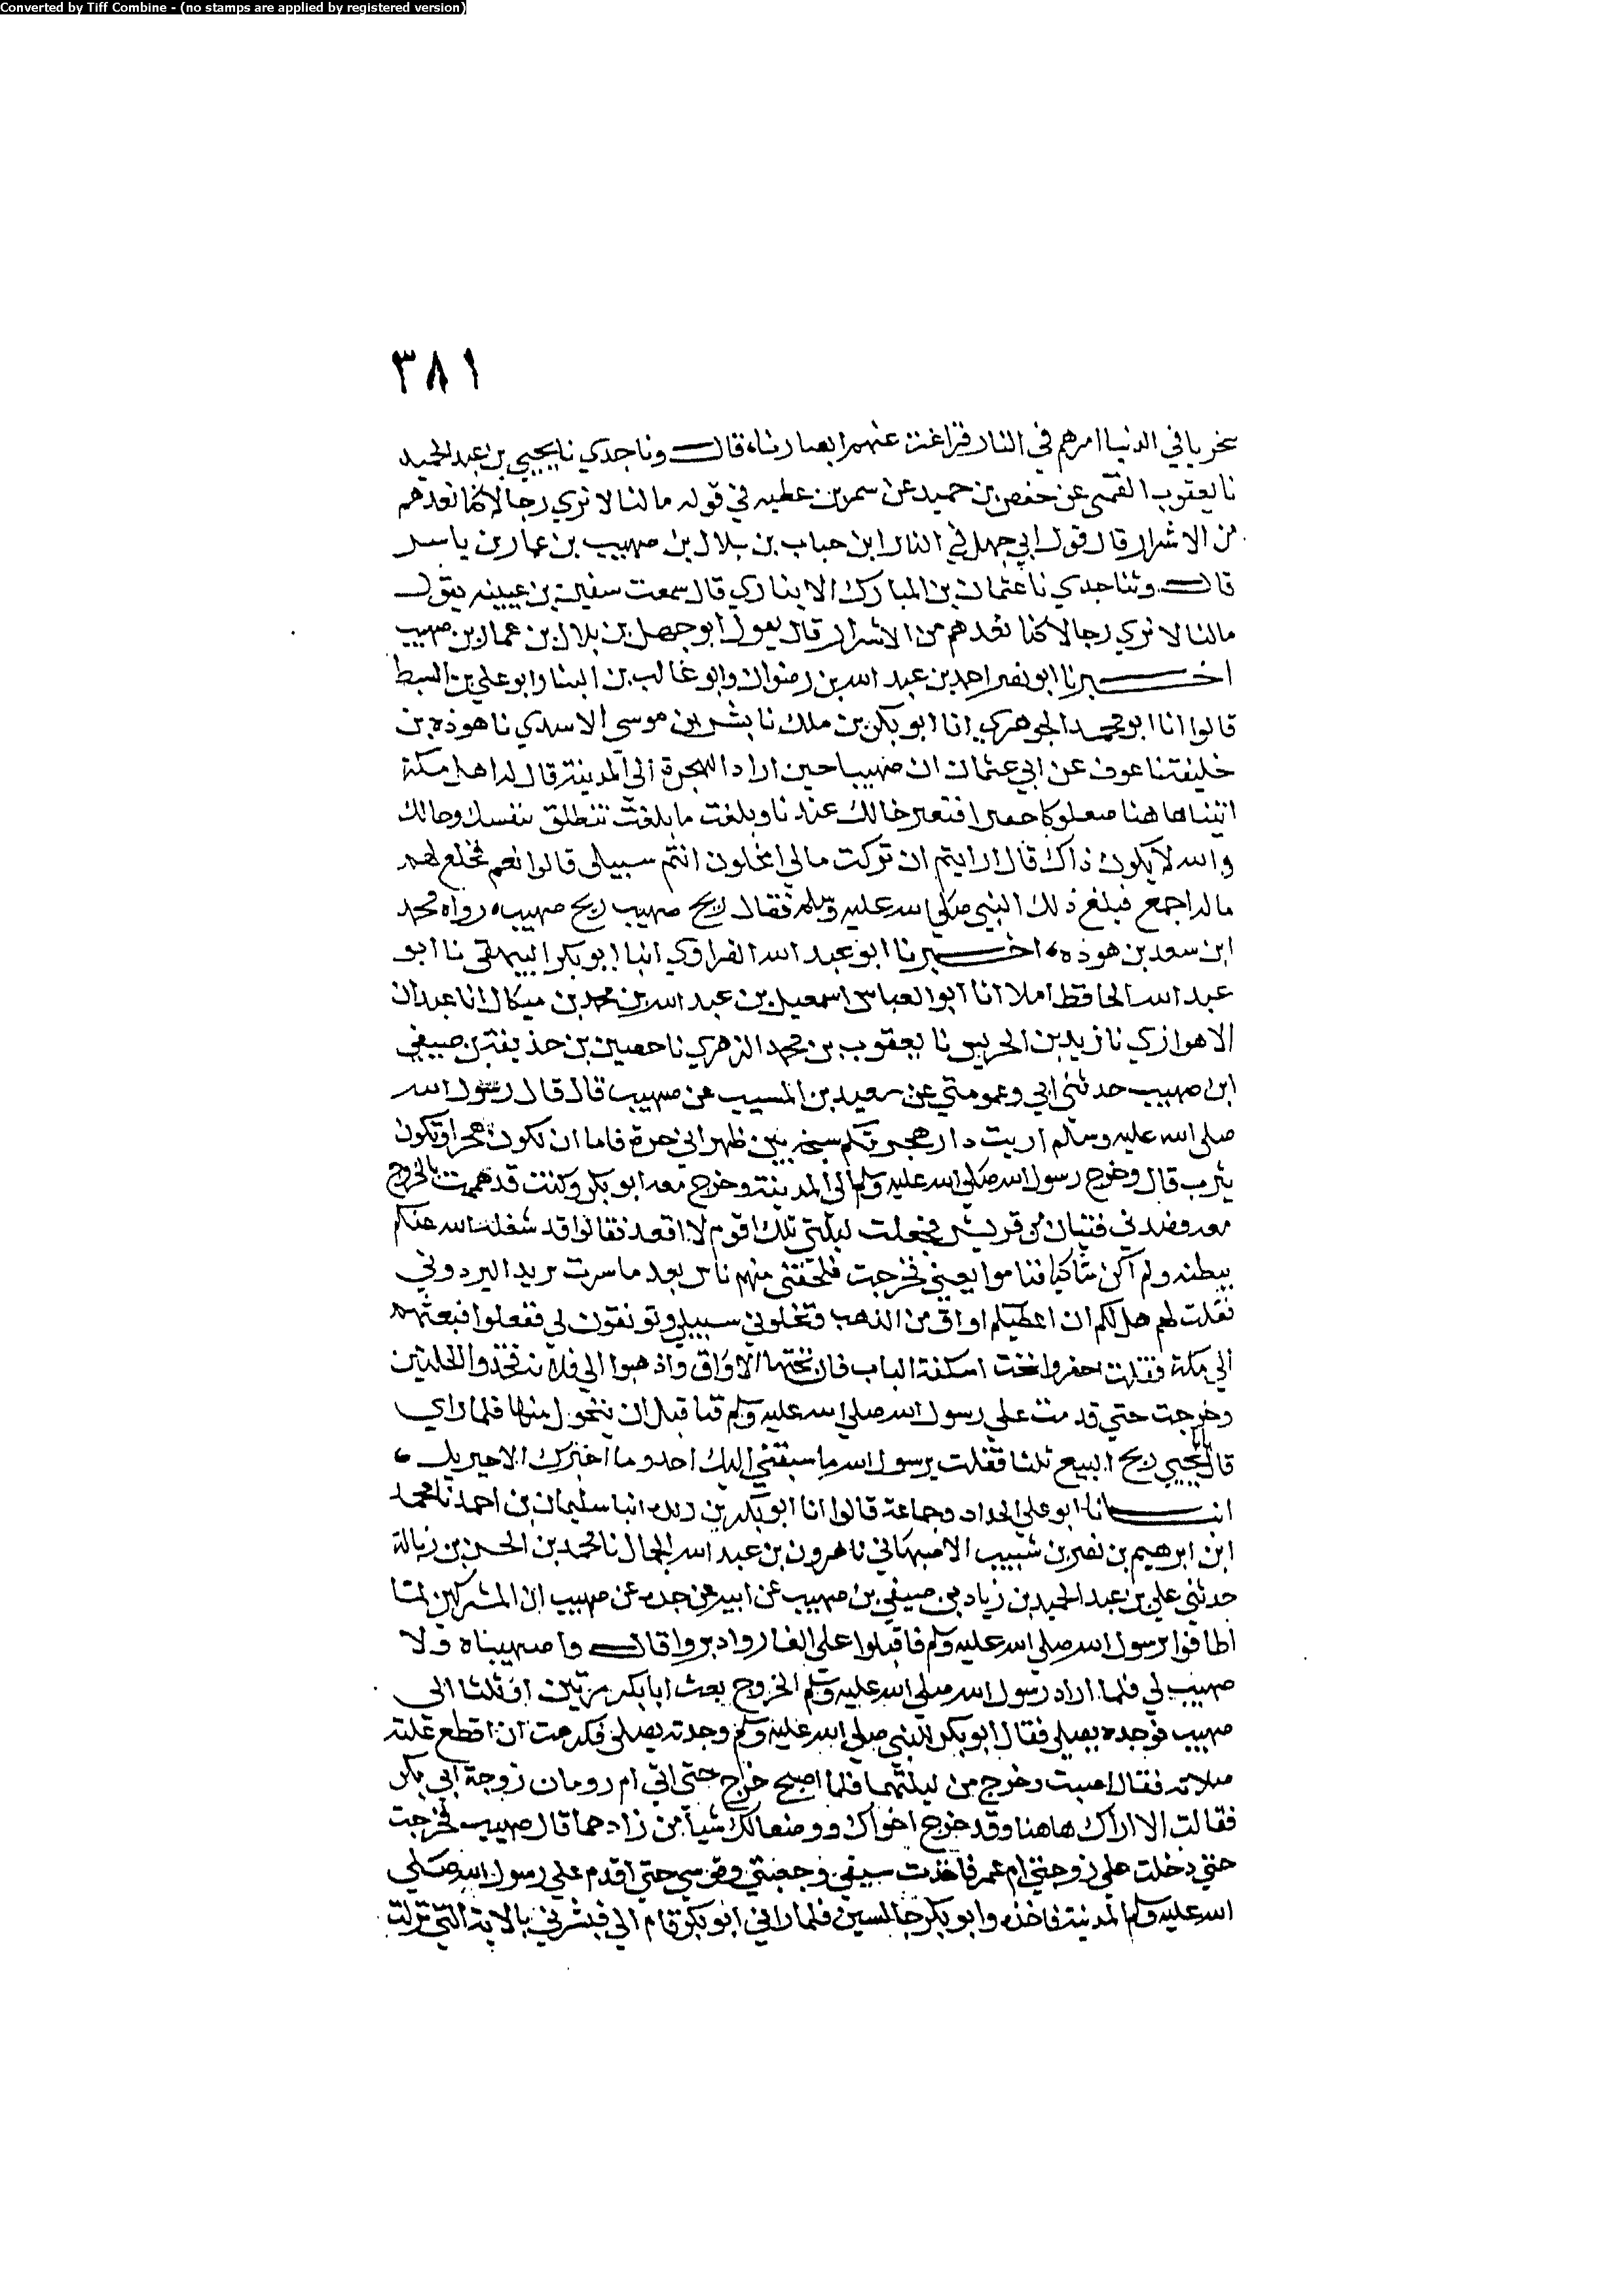 Converted by Tiff Combine - (no stamps are applied by registered version)
٣٨١
سخريا في الدنيا ام هم في النار فزاغت عنهم ابصارنا، قال ونا جدي نا يحيى بن عبد الحميد
نا يعقوب القمي عن حفص بن حميد عن سمر بن عطيه في قوله ما لنا لا نري رجالا كنا نعدهم
من الاشرار قال قول ابي جهل في النار ابن خباب بن بلال بن صهيب بن عمار بن ياسر
قال وثنا جدي نا عثمان بن المبارك الانباري قال سمعت سفين بن عيينه يقول
مالنا لا نري رجالا كنا نعدهم من الاشرار قال يقول ابو جهل بن بلال بن عمار بن صهيب
اخبرنا ابو نصر احمد بن عبد الله بن رضوان وابو غالب بن البنا وابو علي بن السبط
قالوا انا ابو محمد الجوهري انا ابو بكر بن ملك نا بشر بن موسى الاسدي نا هوذه بن
خليفة نا عوف عن ابي عثمان ان صهيبا حين اراد الهجرة الى المدينة قال له اهل مكة
اتيتنا هاهنا صعلوكا حقيرا فتغير حالك عندنا وبلغت ما بلغت تنطلق بنفسك ومالك
والله لا يكون ذاك قال ارايتم ان تركت مالي اتخلون انتم سبيلي قالوا نعم فخلع لهم
ماله اجمع فبلغ ذلك النبي صلى الله عليه وسلم فقال ربح صهيب ربح صهيب، رواه محمد
ابن سعد بن هوذه، اخبرنا ابو عبد الله الفراوي انبا ابو بكر البيهقي نا ابو
عبد الله الحافظ املا انا ابو العباس اسمعيل بن عبد الله بن محمد بن ميكال انا عبدان
الاهوازي نا زيد بن الحريش نا يعقوب بن محمد الزهري نا حصين بن حذيفة بن صيفي
ابن صهيب حدثني ابي وعمومتي عن سعيد بن المسيب عن صهيب قال قال رسول الله
صلى الله عليه وسلم اريت دار هجرتكم سبخة بين ظهراني حرة فاما ان تكون هجرا وتكون
يثرب قال وخرج رسول الله صلى الله عليه وسلم الى المدينة وخرج معه ابو بكر وكنت قد هممت بالخروج
معه وصدني فتيان من قريش فجعلت ليلتي تلك اقوم لا اقعد فقالوا قد شغله الله عنكم
ببطنه ولم اكن شاكيا فناموا يعني فخرجت فلحقني منهم ناس بعد ما سرت يريد اليردوني
فقلت لهم هل لكم ان اعطيكم اواق من الذهب وتخلوني سبيلي وتوثقون لي ففعلوا فبعثتهم
الى مكة فقلت احفروا تحت اسكفة الباب فان تحتها الاواق واذهبوا الي فلانه فخذوا الحلتين
وخرجت حتى قدمت على رسول الله صلى الله عليه وسلم قبا قبل ان يتحول منها فلما راني
قال يا ابا يحيى ربح البيع ثلثا فقلت يرسول الله ما سبقني اليك احد وما اخبرك الا جبريل،
انبانا ابو علي الحداد وجماعة قالوا انا ابو بكر بن ريذه انبا سليمان بن احمد نا محمد
ابن ابرهيم بن نصر بن شبيب الاصبهاني نا هرون بن عبد الله الحمال نا محمد بن الحسن بن زبالة
حدثني علي بن عبد الحميد بن زياد بن صيفي بن صهيب عن ابيه عن جده عن صهيب ان المشركين لما
اطافوا برسول الله صلى الله عليه وسلم فاقبلوا على الغار وادبروا قال واصهيباه ولا
صهيب لي فلما اراد رسول الله صلى الله عليه وسلم الخروج بعث ابا بكر مرتين او ثلثا الى
صهيب فوجده يصلي فقال ابو بكر للنبي صلى الله عليه وسلم وجدته يصلي فكرهت ان اقطع عليه
صلاته فقال اصبت وخرج من ليلتهما فلما اصبح خرج حتى اتى ام رومان زوجة ابي بكر
فقالت الا اراك هاهنا وقد خرج اخواك ووضعا لك شيا من زادهما قال صهيب فخرجت
حتي دخلت على زوجتي ام عمر فاخذت سيفي وجعبتي وقوسي حتى اقدم على رسول الله صلى
الله عليه وسلم المدينة فاخذه وابو بكر جالسين فلما راني ابو بكر قام الي فبشرني بالاية التي نزلت